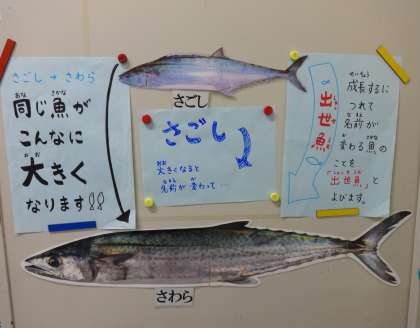 さごし → さわら
同じ魚が
こんなに
大きく
なります!!
さごし
さごし
大きくなると
名前が変わって…
出世魚
成長するに
つれて
名前が
変わる魚の
ことを
「出世魚」と
よびます。
さわら